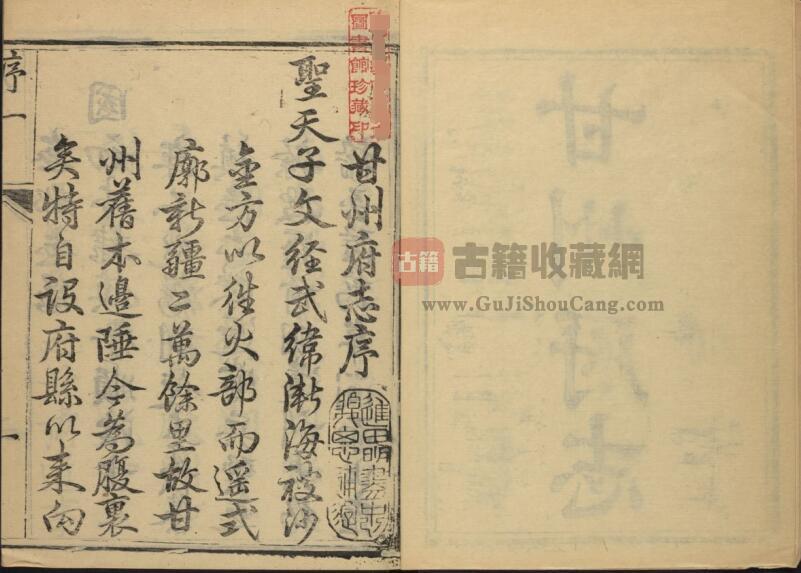 甘州府志序
聖天子文経武緯漸海被沙
金方以徃火部而遥式
廓新疆二萬餘里故甘
州舊本邉陲今為腹裏
矣特自設府縣以来向
序一
一
圖書館珍藏印
古籍
古籍收藏網
www.GuJiShouCang.com
甘州府志